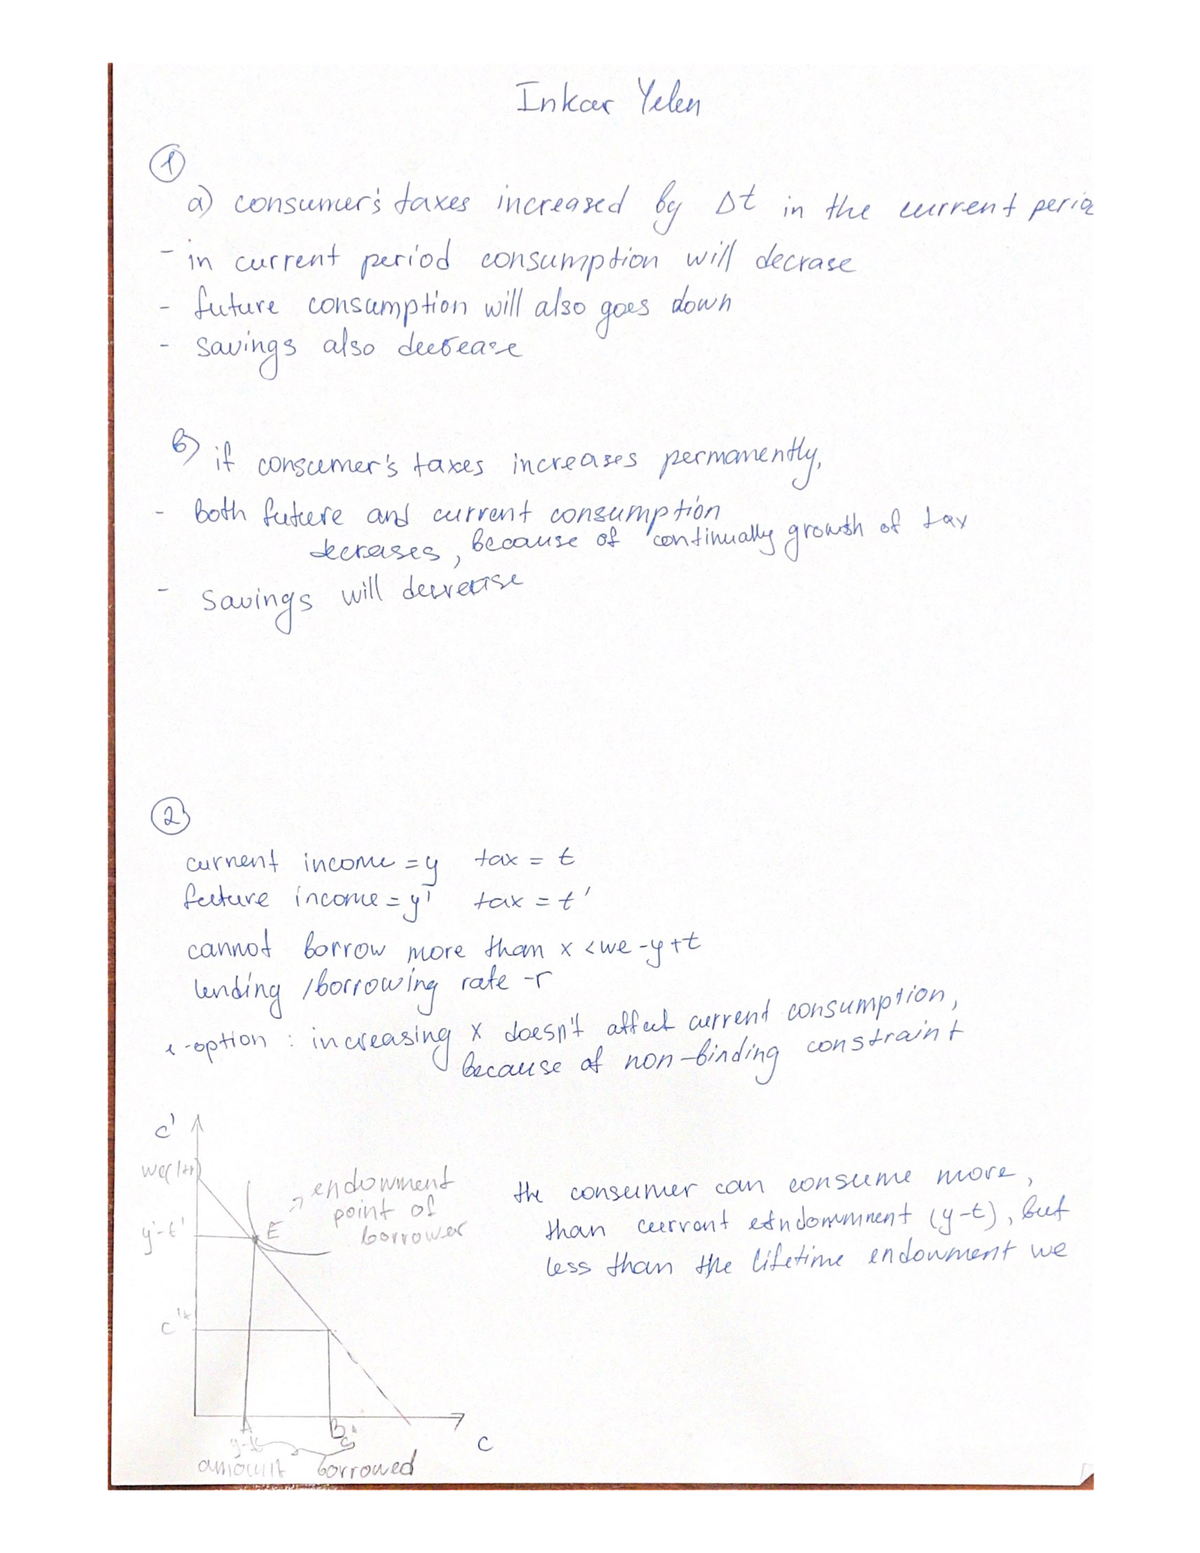 Inkar Yelen
1
a) consumer's taxes increased by Δt in the current perio
- in current period consumption will decrase
- future consumption will also goes down
- savings also decrease
b) if consumer's taxes increases permanently,
- both future and current consumption
decrases, because of continually growth of tax
- savings will decrease
2
current income = y tax = t
future income = y' tax = t'
cannot borrow more than x < we - y + t
lending / borrowing rate - r
-option : increasing x doesn't affect current consumption,
because of non-binding constraint
c'
we(1+r)
endowment
point of
borrower
y'-t'
E
c'*
A
B
y-t
c*
c
amount borrowed
the consumer can consume more,
than current endowmnent (y-t), but
less than the lifetime endowment we